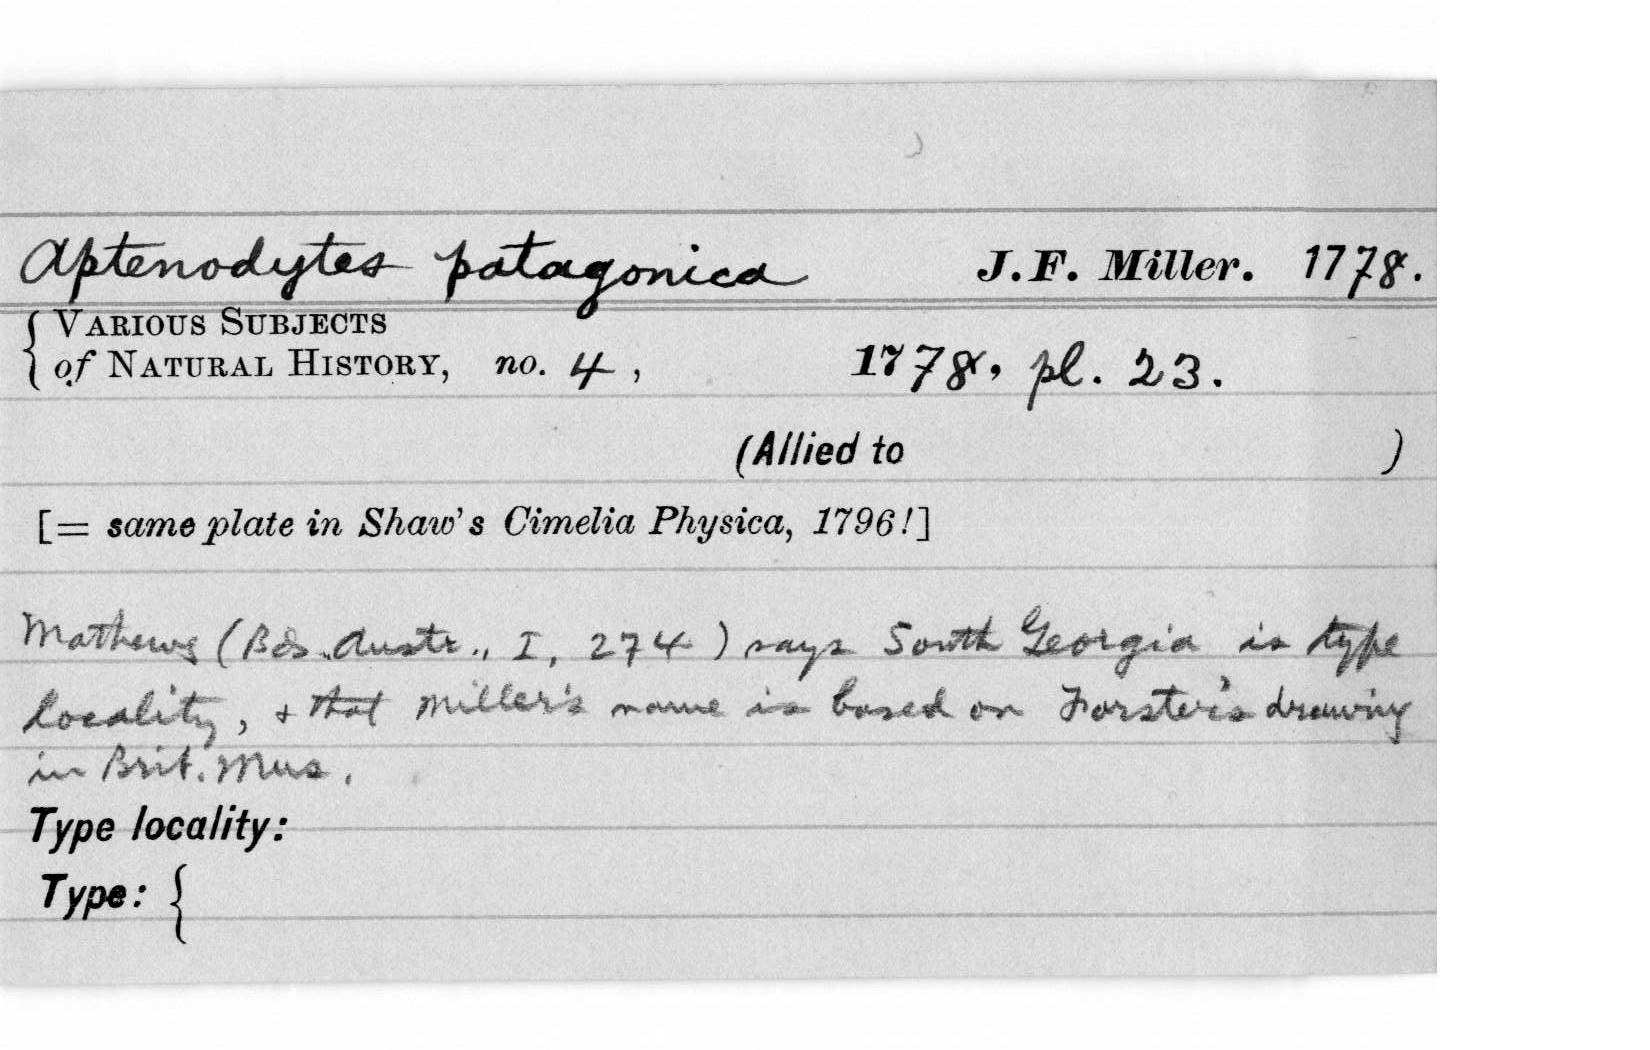 Aptenodytes patagonica J.F. Miller. 1778.
{ VARIOUS SUBJECTS
of NATURAL HISTORY, no. 4, 1778, pl. 23.
(Allied to )
[= same plate in Shaw's Cimelia Physica, 1796!]
Mathews (Bds. Austr., I, 274) says South Georgia is type
locality, + that Miller's name is based on Forster's drawing
in Brit. Mus.
Type locality:
Type: {